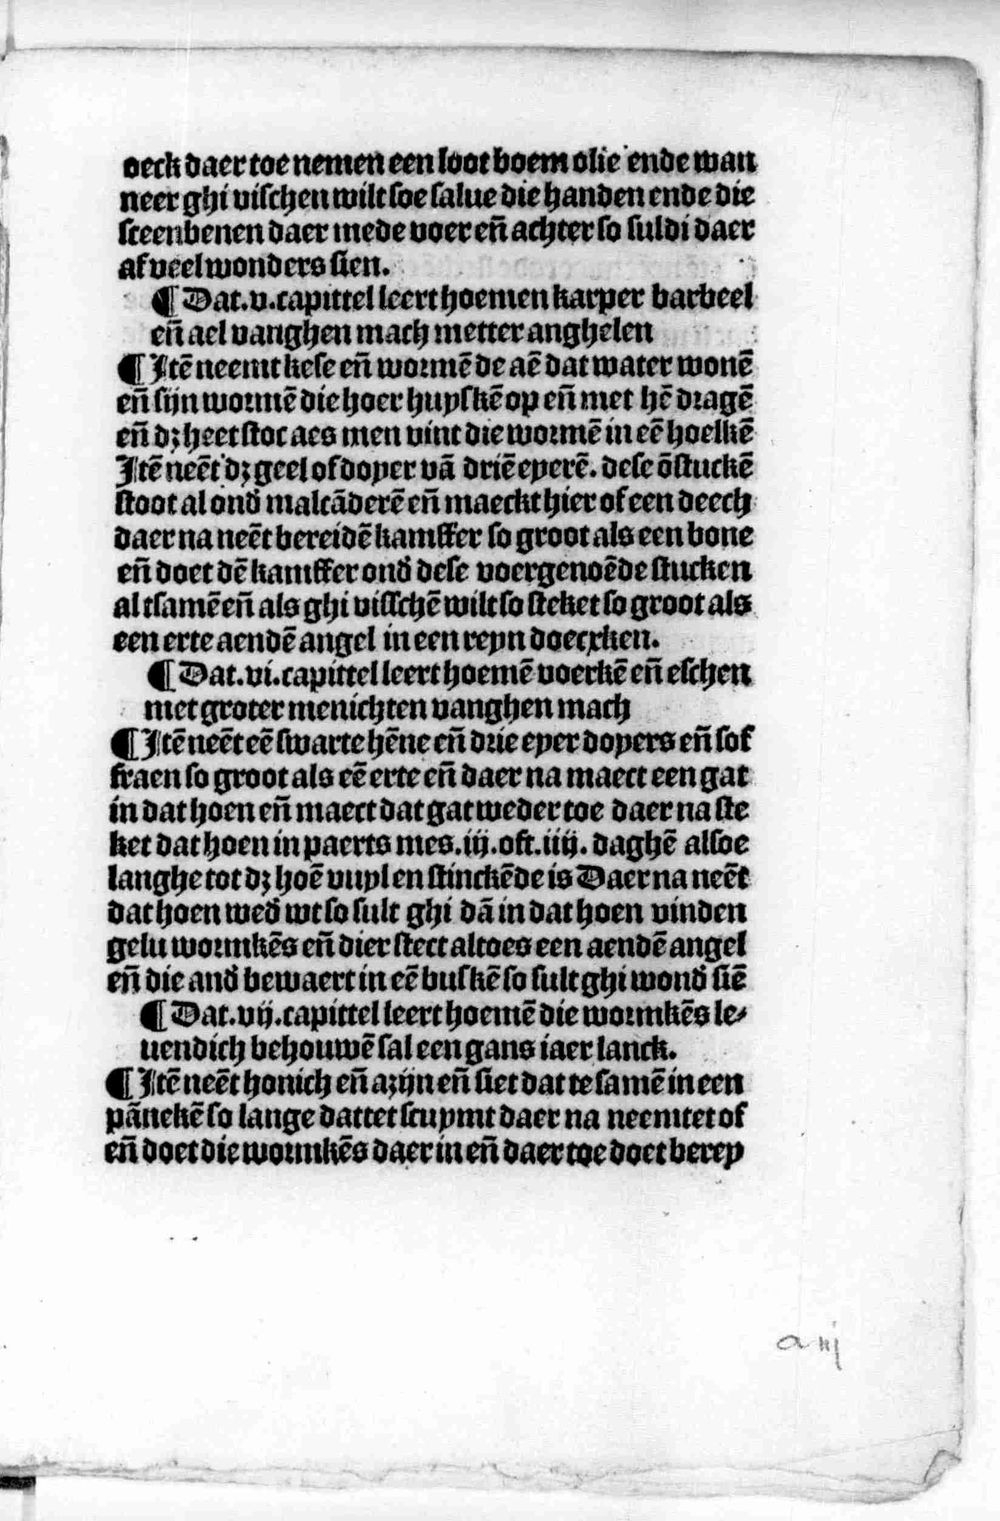 oeck daer toe nemen een loot boem olie ende wan
neer ghi vischen wilt soe salue die handen ende die
sceenbenen daer mede voer eñ achter so suldi daer
af veel wonders sien.
¶ Dat .v. capittel leert hoemen karper barbeel
eñ ael vanghen mach metter anghelen
¶ Itē neemt kese eñ wormē de aē dat water wonē
eñ sijn wormē die hoer huyskē op eñ met hē dragē
eñ dz heet stoc aes men vint die wormē in eē hoelkē
Itē neēt dz geel of doyer vā driē eyerē. dese ōstuckē
stoot al onđ malcāderē eñ maeckt hier of een deech
daer na neēt bereidē kamffer so groot als een bone
eñ doet dē kamffer onđ dese voergenoēde stucken
al tsamē eñ als ghi visschē wilt so steket so groot als
een erte aendē angel in een reyn doecxken.
¶ Dat .vi. capittel leert hoemē voerkē eñ eschen
met groter menichten vanghen mach
¶ Itē neēt eē swarte hēne eñ drie eyer doyers eñ sof
fraen so groot als eē erte eñ daer na maect een gat
in dat hoen eñ maect dat gat weder toe daer na ste
ket dat hoen in paerts mes .iij. oft .iiij. daghē alsoe
langhe tot dz hoē vuyl en stinckēde is Daer na neēt
dat hoen weđ wt so sult ghi dā in dat hoen vinden
gelu wormkēs eñ dier stect altoes een aendē angel
eñ die anđ bewaert in eē buskē so sult ghi wonđ siē
¶ Dat .vij. capittel leert hoemē die wormkēs le⸗
uendich behouwē sal een gans iaer lanck.
¶ Itē neēt honich eñ azijn eñ siet dat te samē in een
pānekē so lange dattet scuymt daer na neemtet of
eñ doet die wormkēs daer in eñ daer toe doet berey
a iij